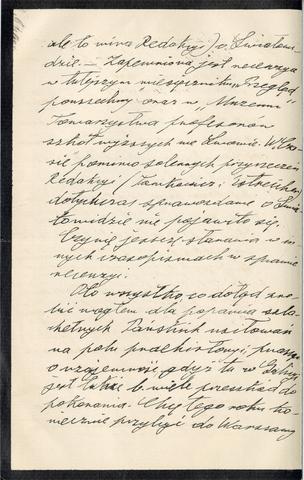 ale to wina Redakcyi) o Światowi-
dzie. — Zapewniona jest recenzya
w tutejszym miesięczniku „Przegląd
powszechny" oraz w Muzeum
Towarzystwa profesorów
szkół wyższych we Lwowie. W
się pomimo solennych przyrzeczeń
Redakcyi (
dotychczas sprawozdanie o Świa-
towidzie nie pojawiło się.
Czynię jeszcze starania w in-
nych czasopismach w sprawie
recenzyi.
Oto wszystko, co dotąd zro-
bić mogłem dla poparcia szla-
chetnych Pańskich usiłowań
na polu prehistoryi, proszę
o wzajemność gdyż tu w Galicyi
jest tak b. wiele przeszkód do
pokonania. Chcę tego roku ko-
niecznie przybyć do Warszawy